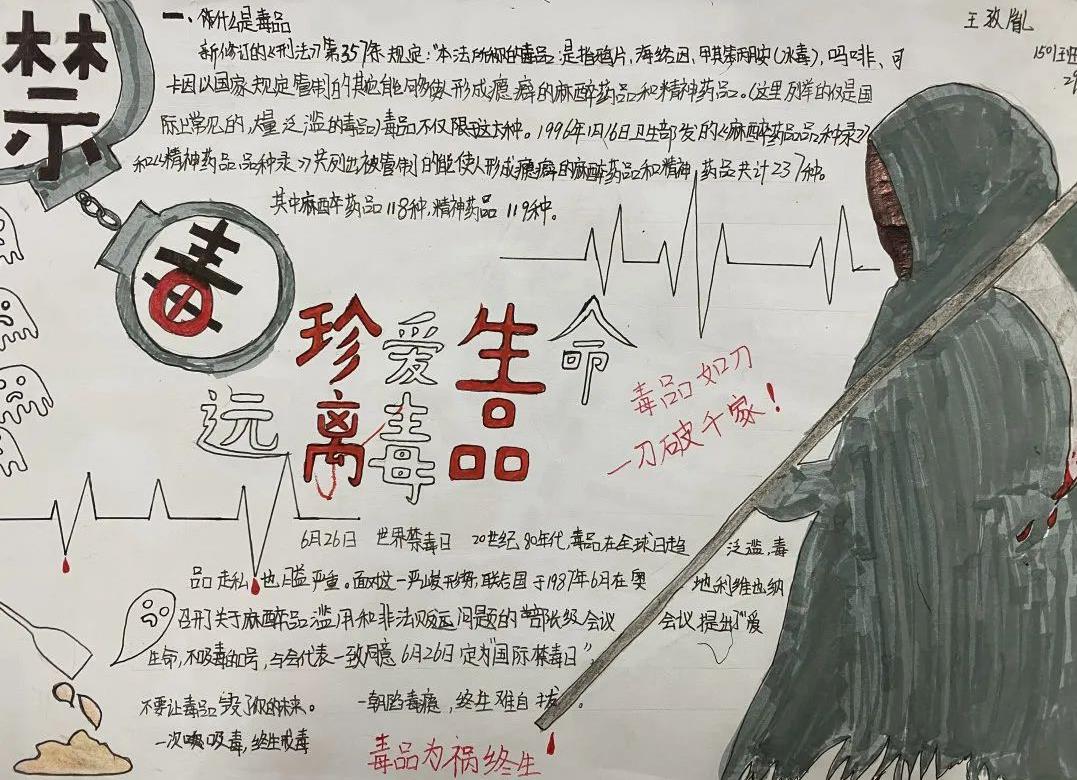 禁
毒
王玫胤
1501班
一、什么是毒品
新修订的《刑法》第357条规定："本法所称的毒品,是指鸦片,海洛因,甲基苯丙胺(冰毒),吗啡、可
卡因以国家规定管制的其它能够使人形成瘾癖的麻醉药品和精神药品。(这里列举的仅是国
际上常见的,大量泛滥的毒品)毒品不仅限于这六种。1996年1月16日卫生部发的《麻醉药品品种录》
和《精神药品品种录》共列出被管制的能使人形成瘾癖的麻醉药品和精神药品共计237种。
其中麻醉药品118种,精神药品119种。
珍爱生命
远离毒品
毒品如刀
一刀破千家!
6月26日 世界禁毒日 20世纪80年代,毒品在全球日趋 泛滥,毒
品走私也日益严重。面对这一严峻形势,联合国于1987年6月在奥 地利维也纳
召开了关于麻醉品滥用和非法贩运问题的"部长级会议 会议提出"爱
生命,不吸毒的口号,与会代表一致同意6月26日定为"国际禁毒日"
不要让毒品毁了你的未来。 一朝陷毒瘾,终生难自拔。
一次吸毒,终生戒毒
毒品为祸终生